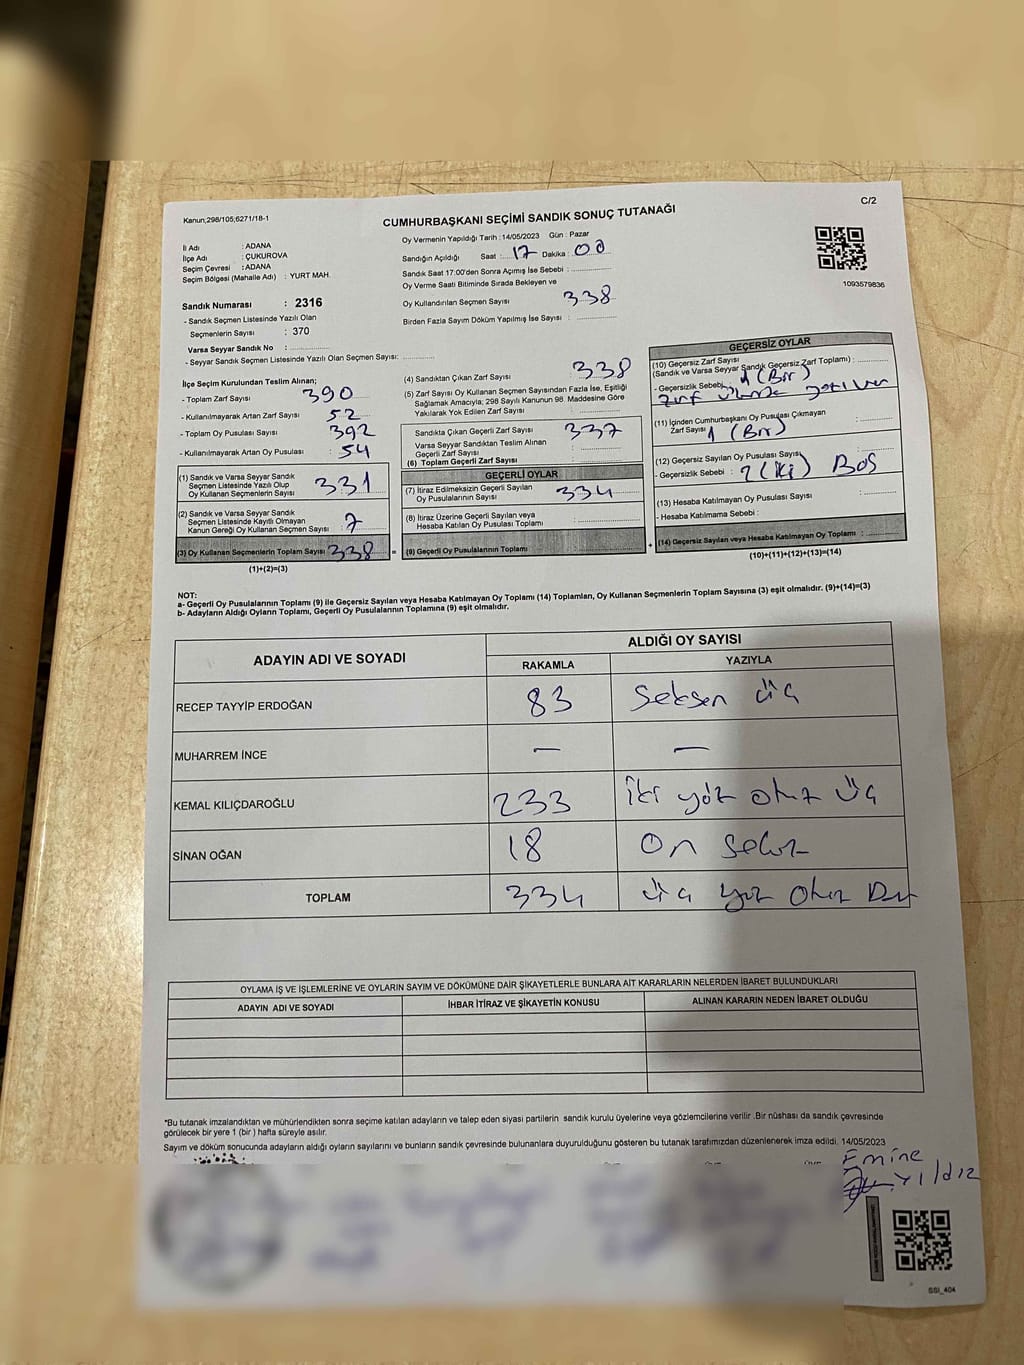 Kanun;298/105;6271/18-1
C/2
CUMHURBAŞKANI SEÇİMİ SANDIK SONUÇ TUTANAĞI
İl Adı : ADANA
İlçe Adı : ÇUKUROVA
Seçim Çevresi : ADANA
Seçim Bölgesi (Mahalle Adı) : YURT MAH.
Sandık Numarası : 2316
- Sandık Seçmen Listesinde Yazılı Olan
Seçmenlerin Sayısı : 370
Varsa Seyyar Sandık No :
- Seyyar Sandık Seçmen Listesinde Yazılı Olan Seçmen Sayısı:
Oy Vermenin Yapıldığı Tarih :14/05/2023 Gün : Pazar
Sandığın Açıldığı Saat : 17 Dakika : 00
Sandık Saat 17:00'den Sonra Açımış İse Sebebi :
Oy Verme Saati Bitiminde Sırada Bekleyen ve
Oy Kullandırılan Seçmen Sayısı 338
Birden Fazla Sayım Döküm Yapılmış İse Sayısı :
1093579836
İlçe Seçim Kurulundan Teslim Alınan;
- Toplam Zarf Sayısı 390
- Kullanılmayarak Artan Zarf Sayısı 52
- Toplam Oy Pusulası Sayısı 392
- Kullanılmayarak Artan Oy Pusulası : 54
(1) Sandık ve Varsa Seyyar Sandık
Seçmen Listesinde Yazılı Olup
Oy Kullanan Seçmenlerin Sayısı 331
(2) Sandık ve Varsa Seyyar Sandık
Seçmen Listesinde Kayıtlı Olmayan
Kanun Gereği Oy Kullanan Seçmen Sayısı : 7
(3) Oy Kullanan Seçmenlerin Toplam Sayısı 338
(1)+(2)=(3)
(4) Sandıktan Çıkan Zarf Sayısı : 338
(5) Zarf Sayısı Oy Kullanan Seçmen Sayısından Fazla İse, Eşitliği
Sağlamak Amacıyla; 298 Sayılı Kanunun 98. Maddesine Göre
Yakılarak Yok Edilen Zarf Sayısı :
Sandıkta Çıkan Geçerli Zarf Sayısı : 337
Varsa Seyyar Sandıktan Teslim Alınan
Geçerli Zarf Sayısı :
(6) Toplam Geçerli Zarf Sayısı :
GEÇERLİ OYLAR
(7) İtiraz Edilmeksizin Geçerli Sayılan
Oy Pusulalarının Sayısı : 334
(8) İtiraz Üzerine Geçerli Sayılan veya
Hesaba Katılan Oy Pusulası Toplamı :
= (9) Geçerli Oy Pusulalarının Toplamı :
GEÇERSİZ OYLAR
(10) Geçersiz Zarf Sayısı
(Sandık ve Varsa Seyyar Sandık Geçersiz Zarf Toplamı) :
- Geçersizlik Sebebi: 1 (Bir)
Zarf
(11) İçinden Cumhurbaşkanı Oy Pusulası Çıkmayan
Zarf Sayısı 1 (Bir) :
(12) Geçersiz Sayılan Oy Pusulası Sayısı
- Geçersizlik Sebebi : 2 (iki) BOŞ
(13) Hesaba Katılmayan Oy Pusulası Sayısı :
- Hesaba Katılmama Sebebi :
+ (14) Geçersiz Sayılan veya Hesaba Katılmayan Oy Toplamı :
(10)+(11)+(12)+(13)=(14)
NOT:
a- Geçerli Oy Pusulalarının Toplamı (9) ile Geçersiz Sayılan veya Hesaba Katılmayan Oy Toplamı (14) Toplamları, Oy Kullanan Seçmenlerin Toplam Sayısına (3) eşit olmalıdır. (9)+(14)=(3)
b- Adayların Aldığı Oyların Toplamı, Geçerli Oy Pusulalarının Toplamına (9) eşit olmalıdır.
ADAYIN ADI VE SOYADI
ALDIĞI OY SAYISI
RAKAMLA YAZIYLA
RECEP TAYYİP ERDOĞAN 83 Seksen üç
MUHARREM İNCE — —
KEMAL KILIÇDAROĞLU 233 İki yüz otuz üç
SİNAN OĞAN 18 On sekiz
TOPLAM 334 üç yüz otuz
OYLAMA İŞ VE İŞLEMLERİNE VE OYLARIN SAYIM VE DÖKÜMÜNE DAİR ŞİKAYETLERLE BUNLARA AİT KARARLARIN NELERDEN İBARET BULUNDUKLARI
ADAYIN ADI VE SOYADI İHBAR İTİRAZ VE ŞİKAYETİN KONUSU ALINAN KARARIN NEDEN İBARET OLDUĞU
*Bu tutanak imzalandıktan ve mühürlendikten sonra seçime katılan adayların ve talep eden siyasi partilerin sandık kurulu üyelerine veya gözlemcilerine verilir .Bir nüshası da sandık çevresinde
görülecek bir yere 1 (bir ) hafta süreyle asılır.
Sayım ve döküm sonucunda adayların aldığı oyların sayılarını ve bunların sandık çevresinde bulunanlara duyurulduğunu gösteren bu tutanak tarafımızdan düzenlenerek imza edildi. 14/05/2023
Emine
Yıldız
SSI_404